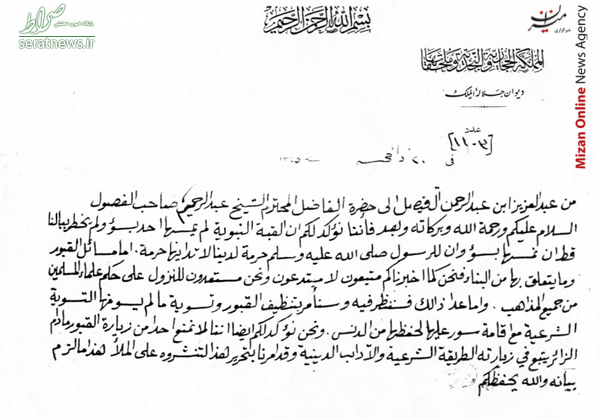 صراط
پایگاه خبری تحلیلی
seratnews.ir
بسم الله الرحمن الرحيم
میزان
خبرگزاری
Mizan Online News Agency
المملكة الحجازية والنجدية وملحقاتها
ديوان جلالة الملك
عدد
[١١٠٣]
في ٢٠ ذا الحجه سنه ١٣٤٥
من عبد العزيز ابن عبد الرحمن آل فيصل الى حضرة الفاضل المحترم الشيخ عبد الرحيم صاحب الفصول
السلام عليكم ورحمة الله وبركاته وبعد فأننا نؤكد لكم ان القبة النبوية لم نمسها احد بسؤ ولم يخطر ببالنا
قط ان نمسها بسؤ وان للرسول صلى الله عليه وسلم حرمة لدينا لا تدانيها حرمة. اما مسائل القبور
وما يتعلق بها من البناء فنحن كما اخبرناكم متبعون لا مبتدعون ونحن مستعدون للنزول على حكم علماء المسلمين
من جميع المذاهب. واما عدا ذالك فننظر فيه وسنأمر بتنظيف القبور وتسوية ما لم يسو منها التسوية
الشرعية مع اقامة سور عليها لحفظها من الدنس. ونحن نؤكد لكم ايضا اننا لا نمنع احدا من زيارة القبور مادام
الزائر يتبع في زيارته الطريقة الشرعية والآداب الدينية وقد امرنا بتحرير هذا لتنشروه على الملأ هذا ما لزم
بيانه والله يحفظكم